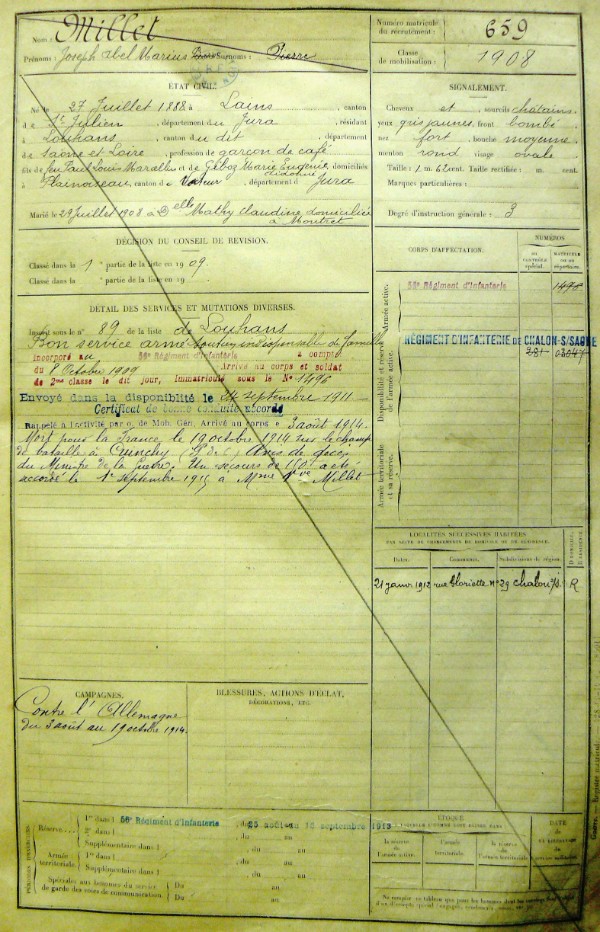 Nom : Millet
Prénoms : Joseph Abel Marius Surnoms : Pierre
Numéro matricule
du recrutement : 659
Classe
de mobilisation : 1908
ÉTAT CIVIL.
Né le 27 Juillet 1888 à Lains, canton
de St Julien, département du Jura, résidant
à Louhans, canton du dit, département
de Saône et Loire, profession de garçon de café
fils de feu Paul Louis Marcellin et de Marie Eugénie, domiciliés
à Plainoiseau, canton de Voiteur, département du Jura
Marié le 29 Juillet 1908 à Delle Mathy Claudine, domiciliée
à Montret
SIGNALEMENT.
Cheveux et sourcils châtains
yeux gris jaunes, front bombé
nez fort, bouche moyenne
menton rond visage ovale
Taille : 1 m. 62 cent. Taille rectifiée : m. cent.
Marques particulières :
Degré d'instruction générale : 3
DÉCISION DU CONSEIL DE RÉVISION.
Classé dans la 1e partie de la liste en 1909.
Classé dans la e partie de la liste en 19
CORPS D'AFFECTATION.
NUMÉROS
AU CONTRÔLE spécial.
MATRICULE ou au répertoire.
Armée active.
56e Régiment d'Infanterie
1496
Disponibilité et réserve de l'armée active.
RÉGIMENT D'INFANTERIE DE CHALON-S/SAONE
281
Armée territoriale et sa réserve.
DÉTAIL DES SERVICES ET MUTATIONS DIVERSES.
Inscrit sous le no 89 de la liste de Louhans
Bon service armé soutien indispensable de famille
Incorporé au 56e Régiment d'Infanterie à compter
du 8 Octobre 1909 Arrivé au corps et soldat
de 2me classe le dit jour, Immatriculé sous le No 1496
Envoyé dans la disponibilité le 24 septembre 1911
Certificat de bonne conduite accordé
Rappelé à l'activité par o. de Mob. Gén. Arrivé au corps le 3 août 1914.
Mort pour la France le 19 octobre 1914 sur le champ
de bataille à Cuinchy (P. de C.) Avis de décès
du Ministre de la Guerre. Un secours de 150f a été
accordé le 1er septembre 1915 à Mme Vve Millet
LOCALITÉS SUCCESSIVES HABITÉES
PAR SUITE DE CHANGEMENTS DE DOMICILE OU DE RÉSIDENCE.
Dates. Communes. Subdivisions de région. D. domicile, R. résidence.
21 janv 1912 rue Gloriette No 29 Chalon s/S. R
CAMPAGNES.
Contre l'Allemagne
du 3 août au 19 octobre 1914.
BLESSURES, ACTIONS D'ÉCLAT,
DÉCORATIONS, ETC.
PÉRIODES D'EXERCICES
Réserve
1re dans l 56e Régiment d'Infanterie, du 25 août au 16 septembre 1913
2e dans l , du au
Supplémentaire dans l , du au
Armée territoriale
1re dans l , du au
Supplémentaire dans l , du au
Spéciales aux hommes du service
de garde des voies de communication.
Du au
Du au
ÉPOQUE
la réserve de l'armée active.
l'armée territoriale.
la réserve de l'armée territoriale.
DATE
DE LA LIBÉRATION
du service militaire.